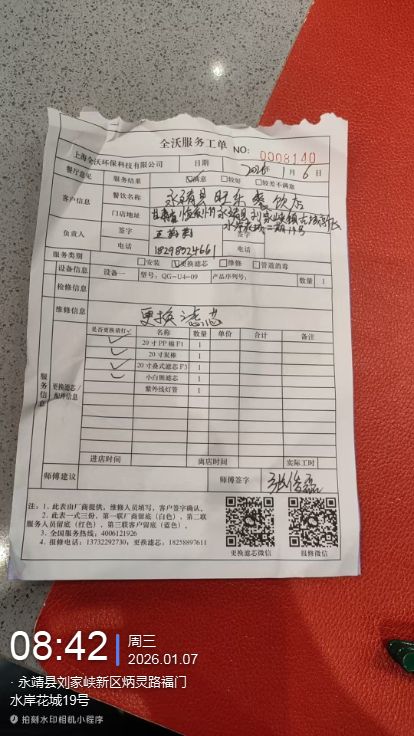 全沃服务工单 NO: 0008140
上海全沃环保科技有限公司 日期 2026年1月6日
餐厅意见 服务结果 ☑满意 □较好 □较差不满意
客户信息 餐饮名称 永靖县旺来餐饮店
门店地址
负责人 签字 签字
电话 18298524661 电话
服务类别 □安装 ☑更换滤芯 □维修 □管道消毒
设备信息 设备一 型号: QG-U4-09 产品序列号: 数量 1
检修信息
维修信息 更换滤芯
服务信息 更换滤芯/配件信息
是否更换请打✓ 名称 数量 单价 合计 备注
✓ 20寸PP棉F1 1
✓ 20寸炭棒 1
✓ 20寸叠式滤芯F3 1
✓ 小白阻滤芯 1
紫外线灯管 1
进店时间 离店时间 实际工时
师傅建议 师傅签字
注: 1. 此表由厂商提供, 维修人员填写, 客户签字确认。
2. 此表一式三份, 第一联厂商留底(白色), 第二联
服务人员留底(红色), 第三联客户留底(蓝色)。
3. 全国服务热线: 4006121926
4. 报修电话: 13732292730; 更换滤芯: 18258897611
更换滤芯微信 报修微信
08:42 周三
2026.01.07
· 永靖县刘家峡新区炳灵路福门
水岸花城19号
拍刻水印相机小程序